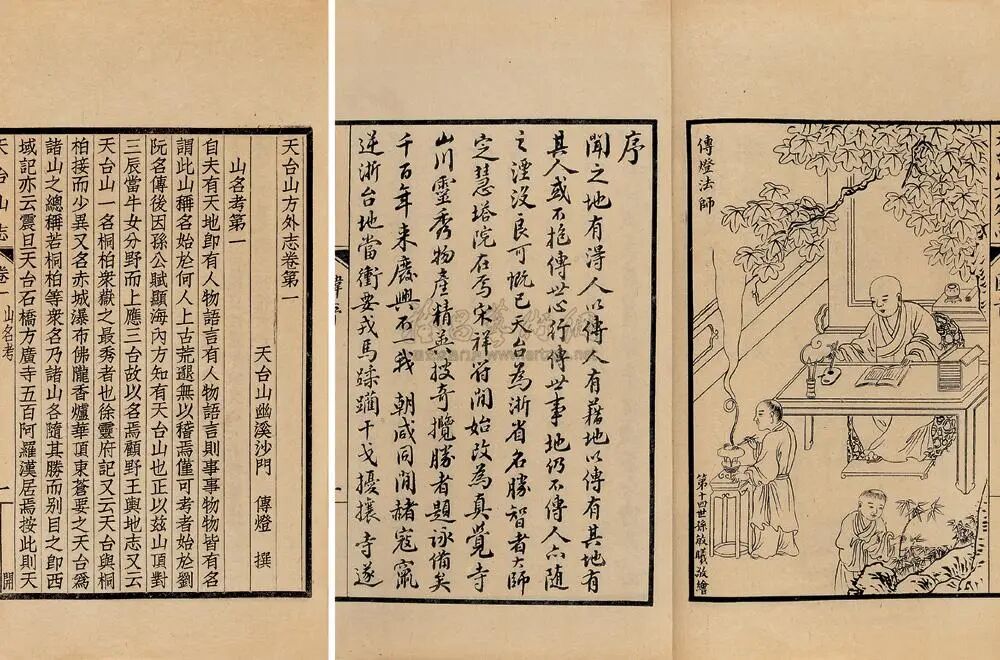 傳燈法師
第十四世孫敏曦敬繪
序
聞之地有得人以傳人有藉地以傳有其地有
其人或不抱傳世心行傳世事地仍不傳人亦隨
之湮沒良可慨已天台為浙省名勝智者大師
定慧塔院在焉宋祥符間始改為真覺寺
山川靈秀物產精英披奇攬勝者題詠備矣
千百年來廢興不一我 朝咸同間赭寇竄
逆浙台地當衝要戎馬蹂躪干戈擾攘寺遂
天台山方外志卷第一
天台山幽溪沙門 傳燈 撰
山名考第一
自夫有天地即有人物語言有人物語言則事事物物皆有名
謂此山稱名始於何人上古荒邈無以稽焉僅可考者始於劉
阮名傳後因孫公賦顯海內方知有天台山也正以茲山頂對
三辰當牛女分野而上應三台故以名焉顧野王輿地志又云
天台山一名桐柏衆嶽之最秀者也徐靈府記又云天台與桐
柏接而少異又名赤城瀑布佛隴香爐華頂東蒼要之天台爲
諸山之總稱若桐柏等衆名乃諸山各隨其勝而別目之即西
域記亦云震旦天台石橋方廣寺五百阿羅漢居焉按此則天
天台山志 卷一 山名考 一